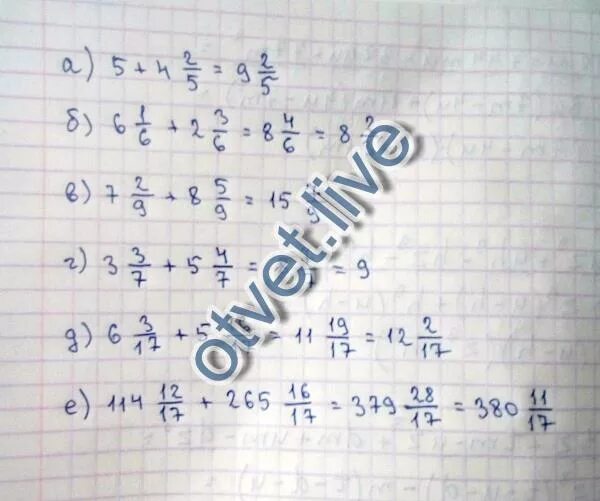 а) 5 + 4 2/5 = 9 2/5
б) 6 1/6 + 2 3/6 = 8 4/6 = 8 2/
в) 7 2/9 + 8 5/9 = 15 /9
г) 3 3/7 + 5 4/7 = = 9
д) 6 3/17 + 5 /17 = 11 19/17 = 12 2/17
е) 114 12/17 + 265 16/17 = 379 28/17 = 380 11/17
otvet.live